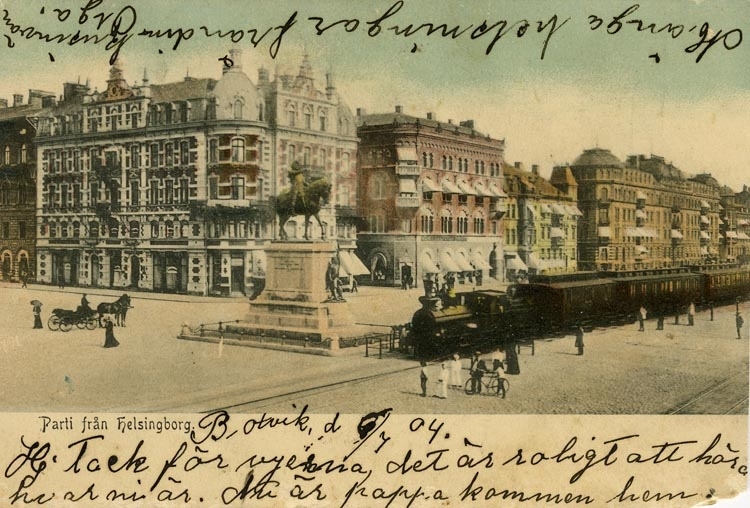 Många helsningar från din
tillgifne
Parti från Helsingborg.
B, otvik, d 6/7 04.
Hj. tack för vyerna, det är roligt att höra
hvar ni är. Nu är pappa kommen hem.